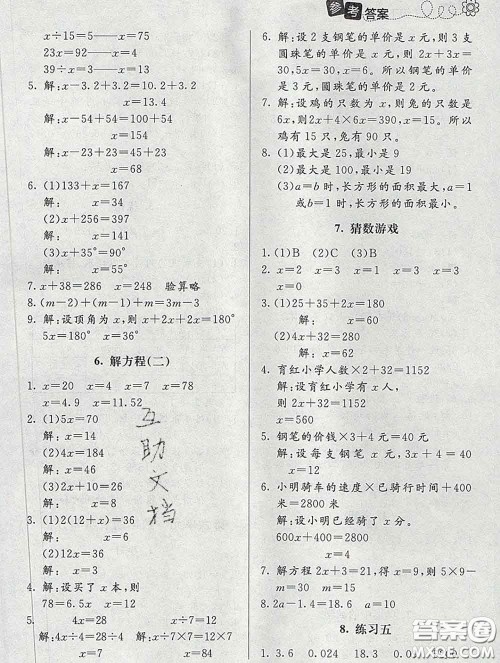 参考答案
x÷15=5——x=75
23x=92——x=4
39÷x=3——x=13
5. 解:x-3.2+3.2=10.2+3.2
x=13.4
解:x-54+54=100+54
x=154
解:x-23+23=45+23
x=68
6. (1)133+x=167
解: x=34
(2)x+106=248
解: x=142
(3)x+35°=90°
解: x=55°
7. x+38=286 x=248 验算略
8. (m-2)+(m-1)+m=3m-3
9. 解:设顶角为x,则x+2x+2x=180°
5x=180° x=36°
6. 解方程(二)
1. x=20 x=4 x=7 x=78
x=4.9 x=11.52
2. (1)5x=70
解:x=14
(2)4x=184
解:x=46
(3)2x+10=26
解: x=8
3. (1)2(12+x)=36
解: x=6
(2)12x=36
解:x=3
4. 解:设买了x本,则
78=6.5x x=12
5. 4x=28 x÷7=12
解:4x÷4=28÷4 解:x÷7×7=12×7
x=7 x=84
6. 解:设2支钢笔的单价是x元,则3支
圆珠笔的单价是x元,则2x+3x=
30,5x=30,x=6。所以钢笔的单
价是3元,圆珠笔的单价是2元。
7. 解:设鸡的只数为x,则兔的只数是
6x,则2x+4×6x=390,x=15。所
以鸡有15只,兔有90只。
8. (1)最大是25,最小是9
(2)最大是100,最小是19
(3)a=b时,长方形的面积最大,a=1
或b=1时,长方形的面积最小。
7. 猜数游戏
1. (1)B (2)C (3)B
2. x=2 x=1 x=3 x=3
x=3
3. (1)25+35+2x=180
解: x=60
(2)4x+32=180
解: x=62
4. 育红小学人数×2+32=1152
解:设育红小学有x人。
2x+32=1152
x=560
5. 钢笔的价钱×3+4元=40元
解:设每支钢笔x元。3x+4=40
x=12
6. 小明骑车的速度×已骑行时间+400
米=2800米
解:设小明已经骑了x分。
600x+400=2800
x=4
7. 解方程2x+3=21,得x=9。则5×9-
m=30 m=15
8. 2a-1.8=10.2 a=6
8. 练习五
1. 3.6 0.024 18.3
互助文档
答案圈